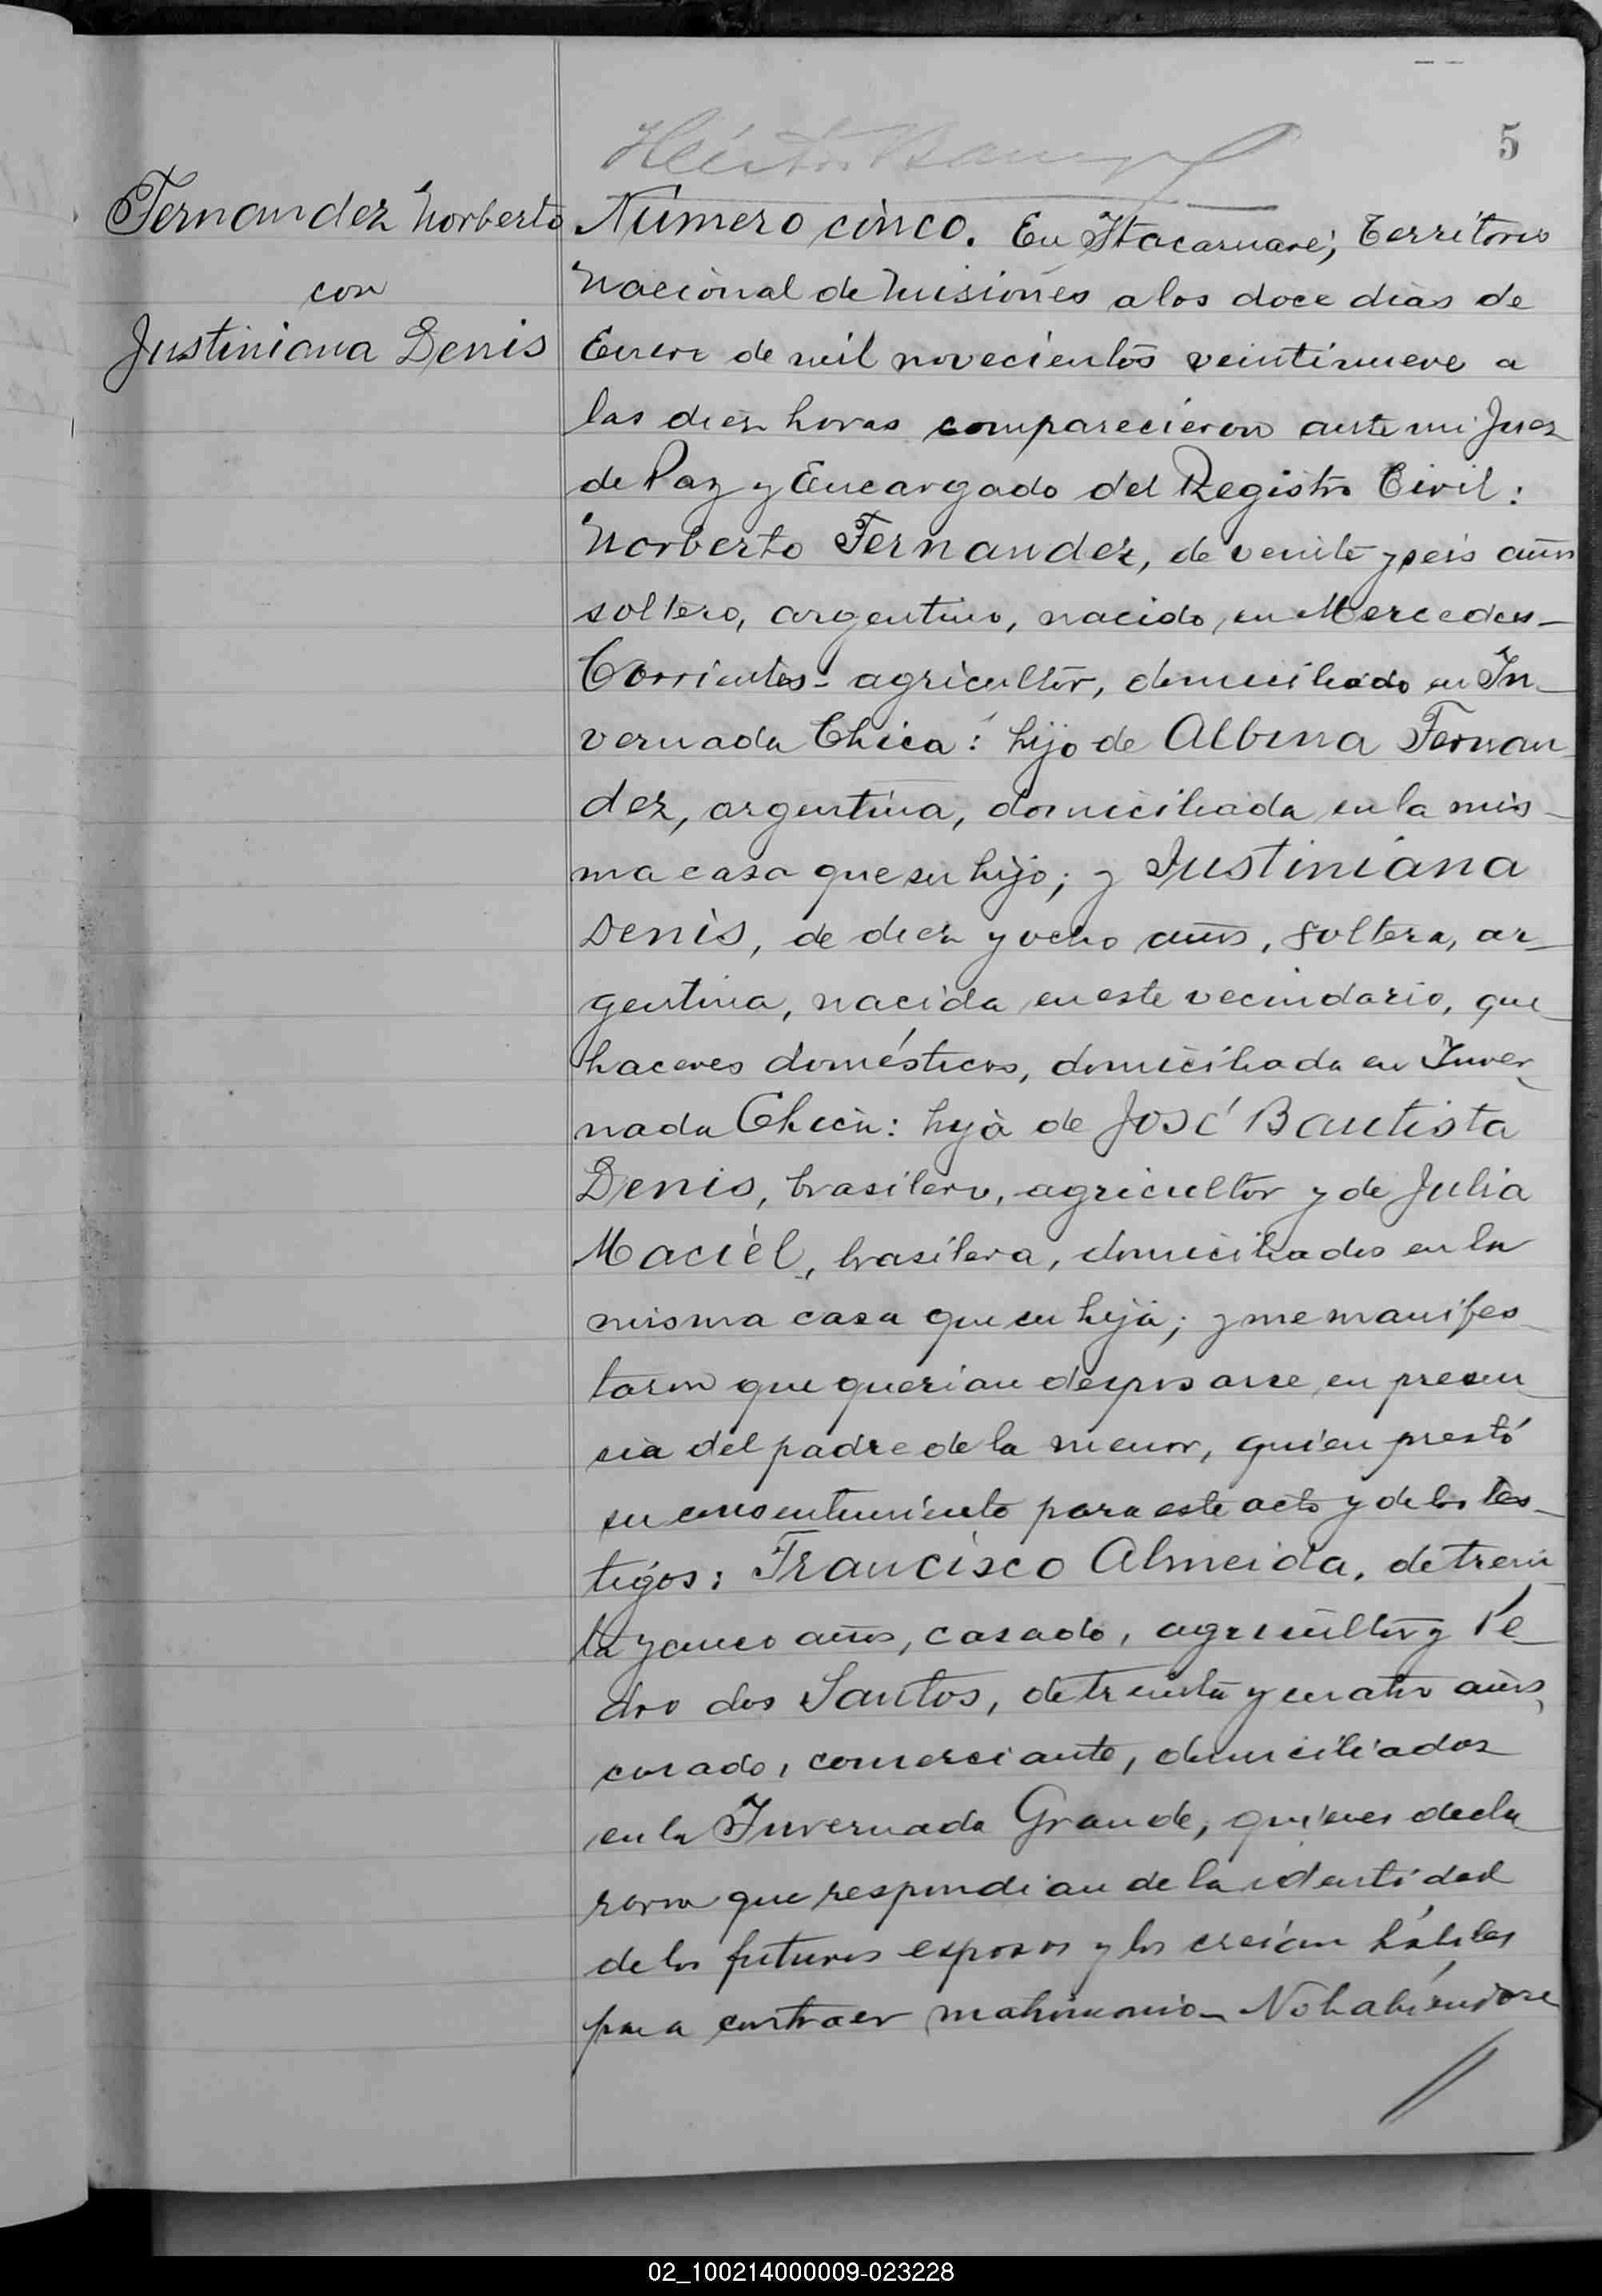 5
Fernandez Norberto
con
Justiniana Denis
Número cinco. En Itacaruaré, Territorio
Nacional de Misiones a los doce dias de
Enero de mil novecientos veintinueve a
las diez horas comparecieron ante mi Juez
de Paz y Encargado del Registro Civil:
Norberto Fernandez, de veinte y seis años
soltero, argentino, nacido en Mercedes-
Corrientes- agricultor, domiciliado en In-
vernada Chica: hijo de Albina Fernan
dez, argentina, domiciliada en la mis-
ma casa que su hijo; y Justiniana
Denis, de diez y ocho años, soltera, ar-
gentina, nacida en este vecindario, que-
haceres domésticos, domiciliada en Inver-
nada Chica: hija de José Bautista
Denis, brasilero, agricultor y de Julia
Maciel, brasilera, domiciliados en la
misma casa que su hija; y me manifes-
taron que querian desposarse en presen-
cia del padre de la menor, quien prestó
su consentimiento para este acto y de los tes-
tigos: Francisco Almeida, de trein
ta y cinco años, casado, agricultor y Pe-
dro dos Santos, de treinta y cuatro años,
casado, comerciante, domiciliados
en la Invernada Grande, quienes decla
raron que respondian de la identidad
de los futuros esposos y los creían hábiles
para contraer matrimonio- No habiendose
02_100214000009-023228